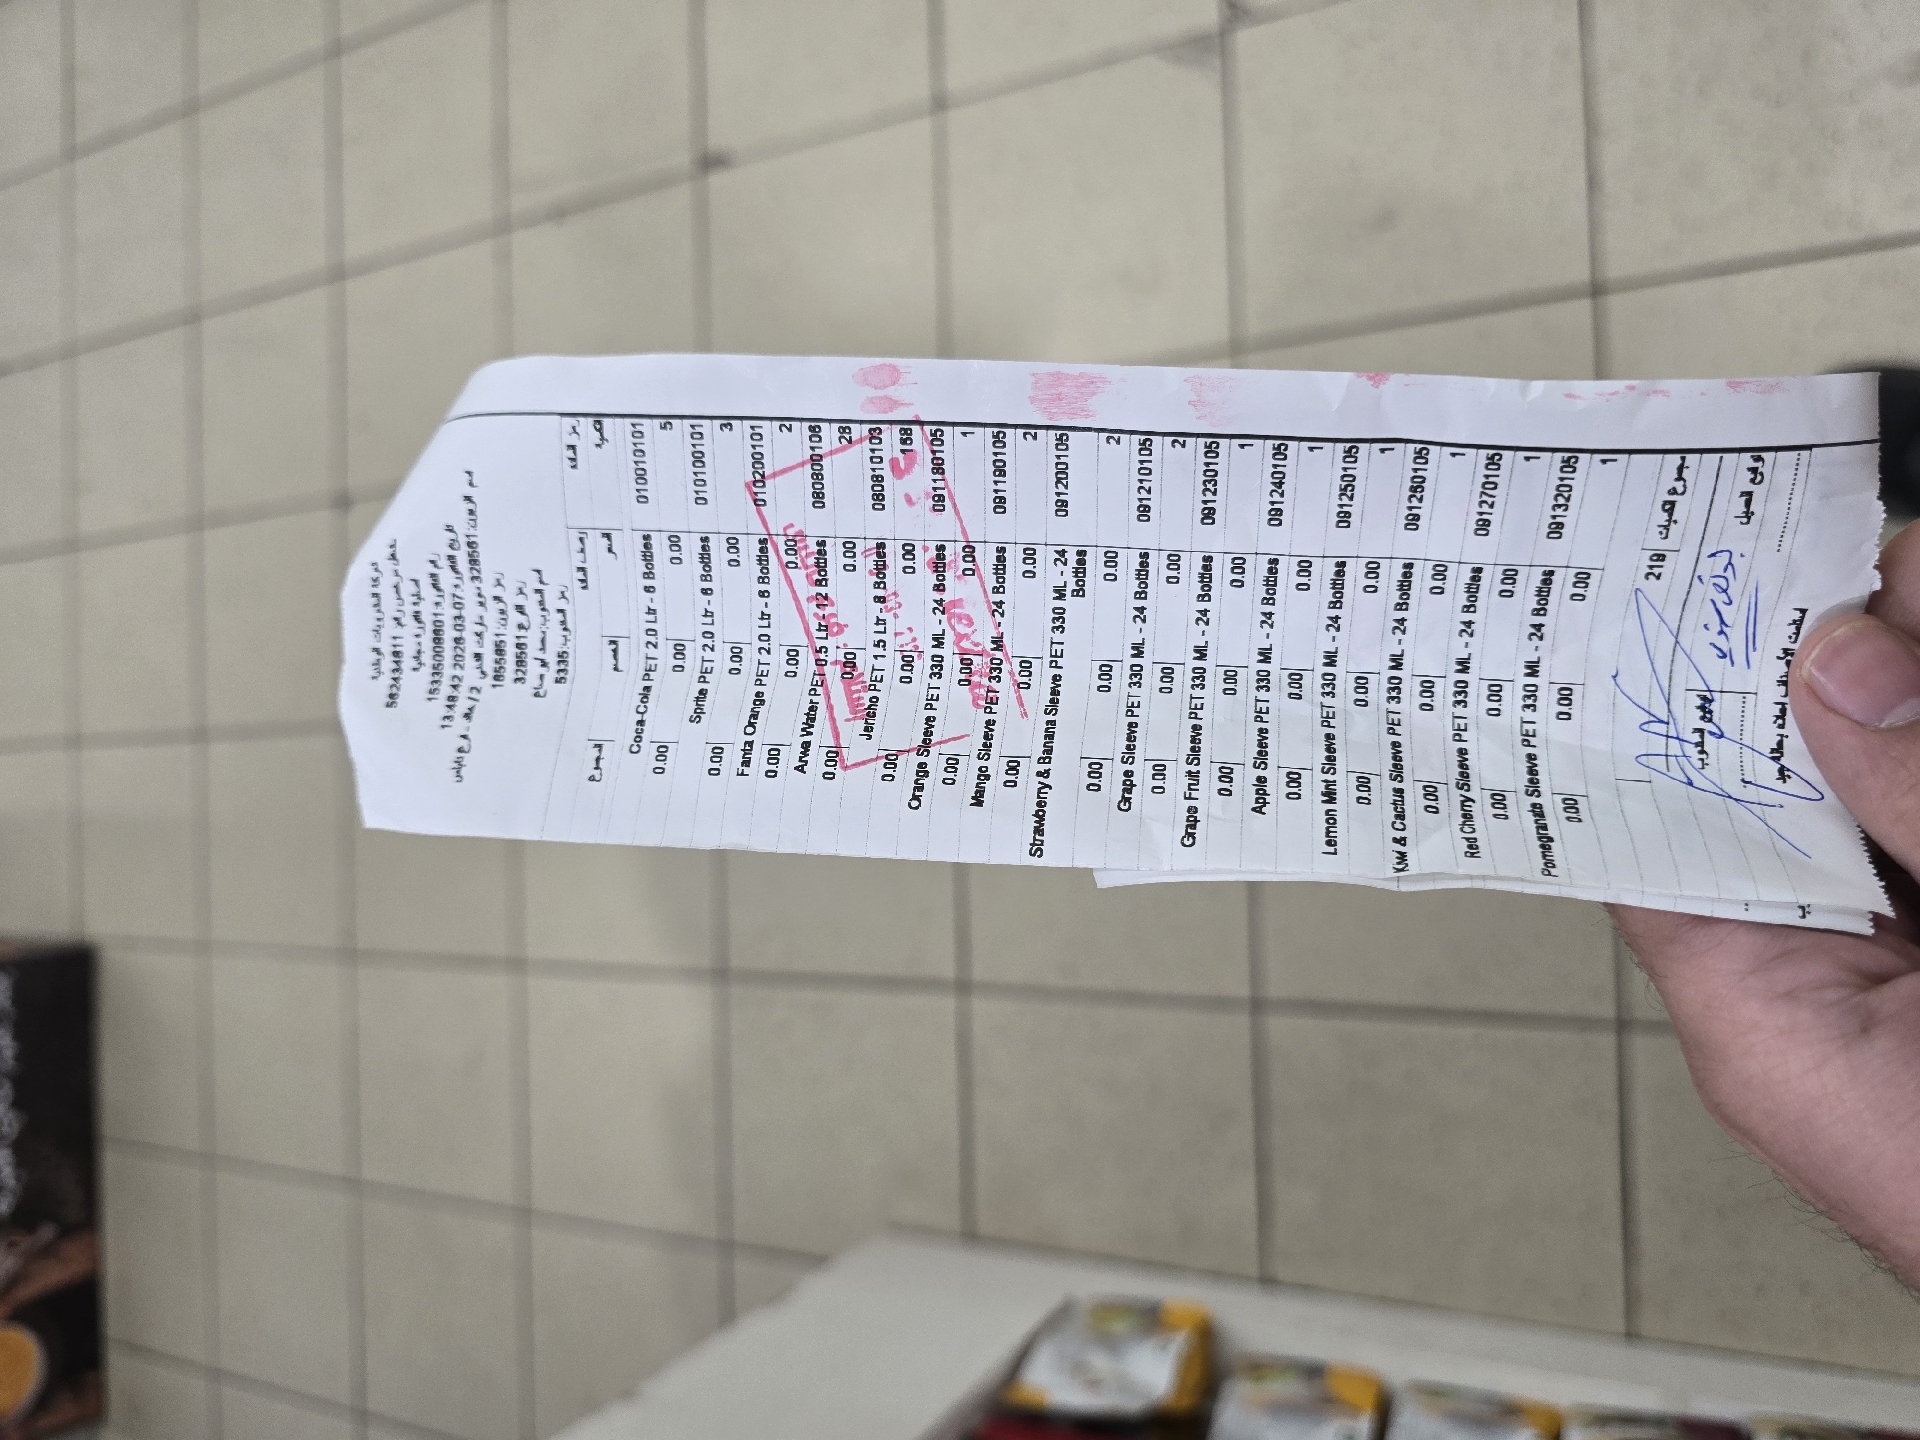 شركة المشروبات الوطنية
مشتغل مرخص رقم 562434811
رقم الفاتورة: 15335009601
13:48:42 2026-03-07 : تاريخ الفاتورة
رمز الزبون: 165585
رمز الفرع 328561
رمز المندوب: 5335
رمز المادة وصف المادة
الكمية السعر الخصم المجموع
010010101 Coca-Cola PET 2.0 Ltr - 6 Bottles
5 0.00 0.00 0.00
010100101 Sprite PET 2.0 Ltr - 6 Bottles
3 0.00 0.00 0.00
010200101 Fanta Orange PET 2.0 Ltr - 6 Bottles
2 0.00 0.00 0.00
080800106 Arwa Water PET 0.5 Ltr - 12 Bottles
28 0.00 0.00 0.00
080810103 Jericho PET 1.5 Ltr - 8 Bottles
168 0.00 0.00 0.00
091180105 Orange Sleeve PET 330 ML - 24 Bottles
1 0.00 0.00 0.00
091190105 Mango Sleeve PET 330 ML - 24 Bottles
2 0.00 0.00 0.00
091200105 Strawberry & Banana Sleeve PET 330 ML - 24
Bottles
2 0.00 0.00 0.00
091210105 Grape Sleeve PET 330 ML - 24 Bottles
2 0.00 0.00 0.00
091230105 Grape Fruit Sleeve PET 330 ML - 24 Bottles
1 0.00 0.00 0.00
091240105 Apple Sleeve PET 330 ML - 24 Bottles
1 0.00 0.00 0.00
091250105 Lemon Mint Sleeve PET 330 ML - 24 Bottles
1 0.00 0.00 0.00
091260105 Kiwi & Cactus Sleeve PET 330 ML - 24 Bottles
1 0.00 0.00 0.00
091270105 Red Cherry Sleeve PET 330 ML - 24 Bottles
1 0.00 0.00 0.00
091320105 Pomegranate Sleeve PET 330 ML - 24 Bottles
1 0.00 0.00 0.00
مجموع الكميات 219
توقيع العميل